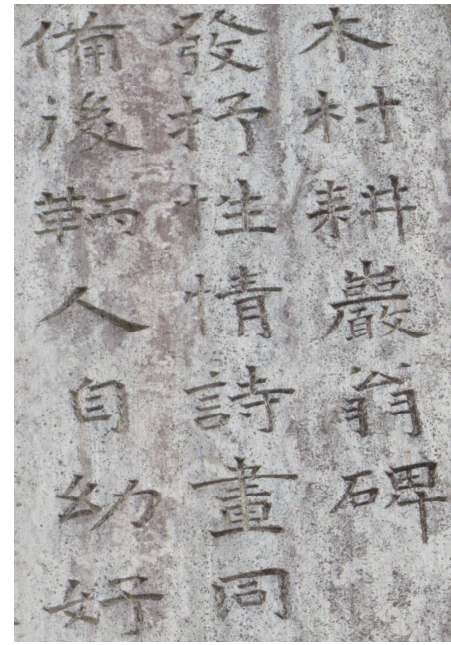 木村耕巖翁碑
發抒性情詩畫同
備後鞆人自幼好